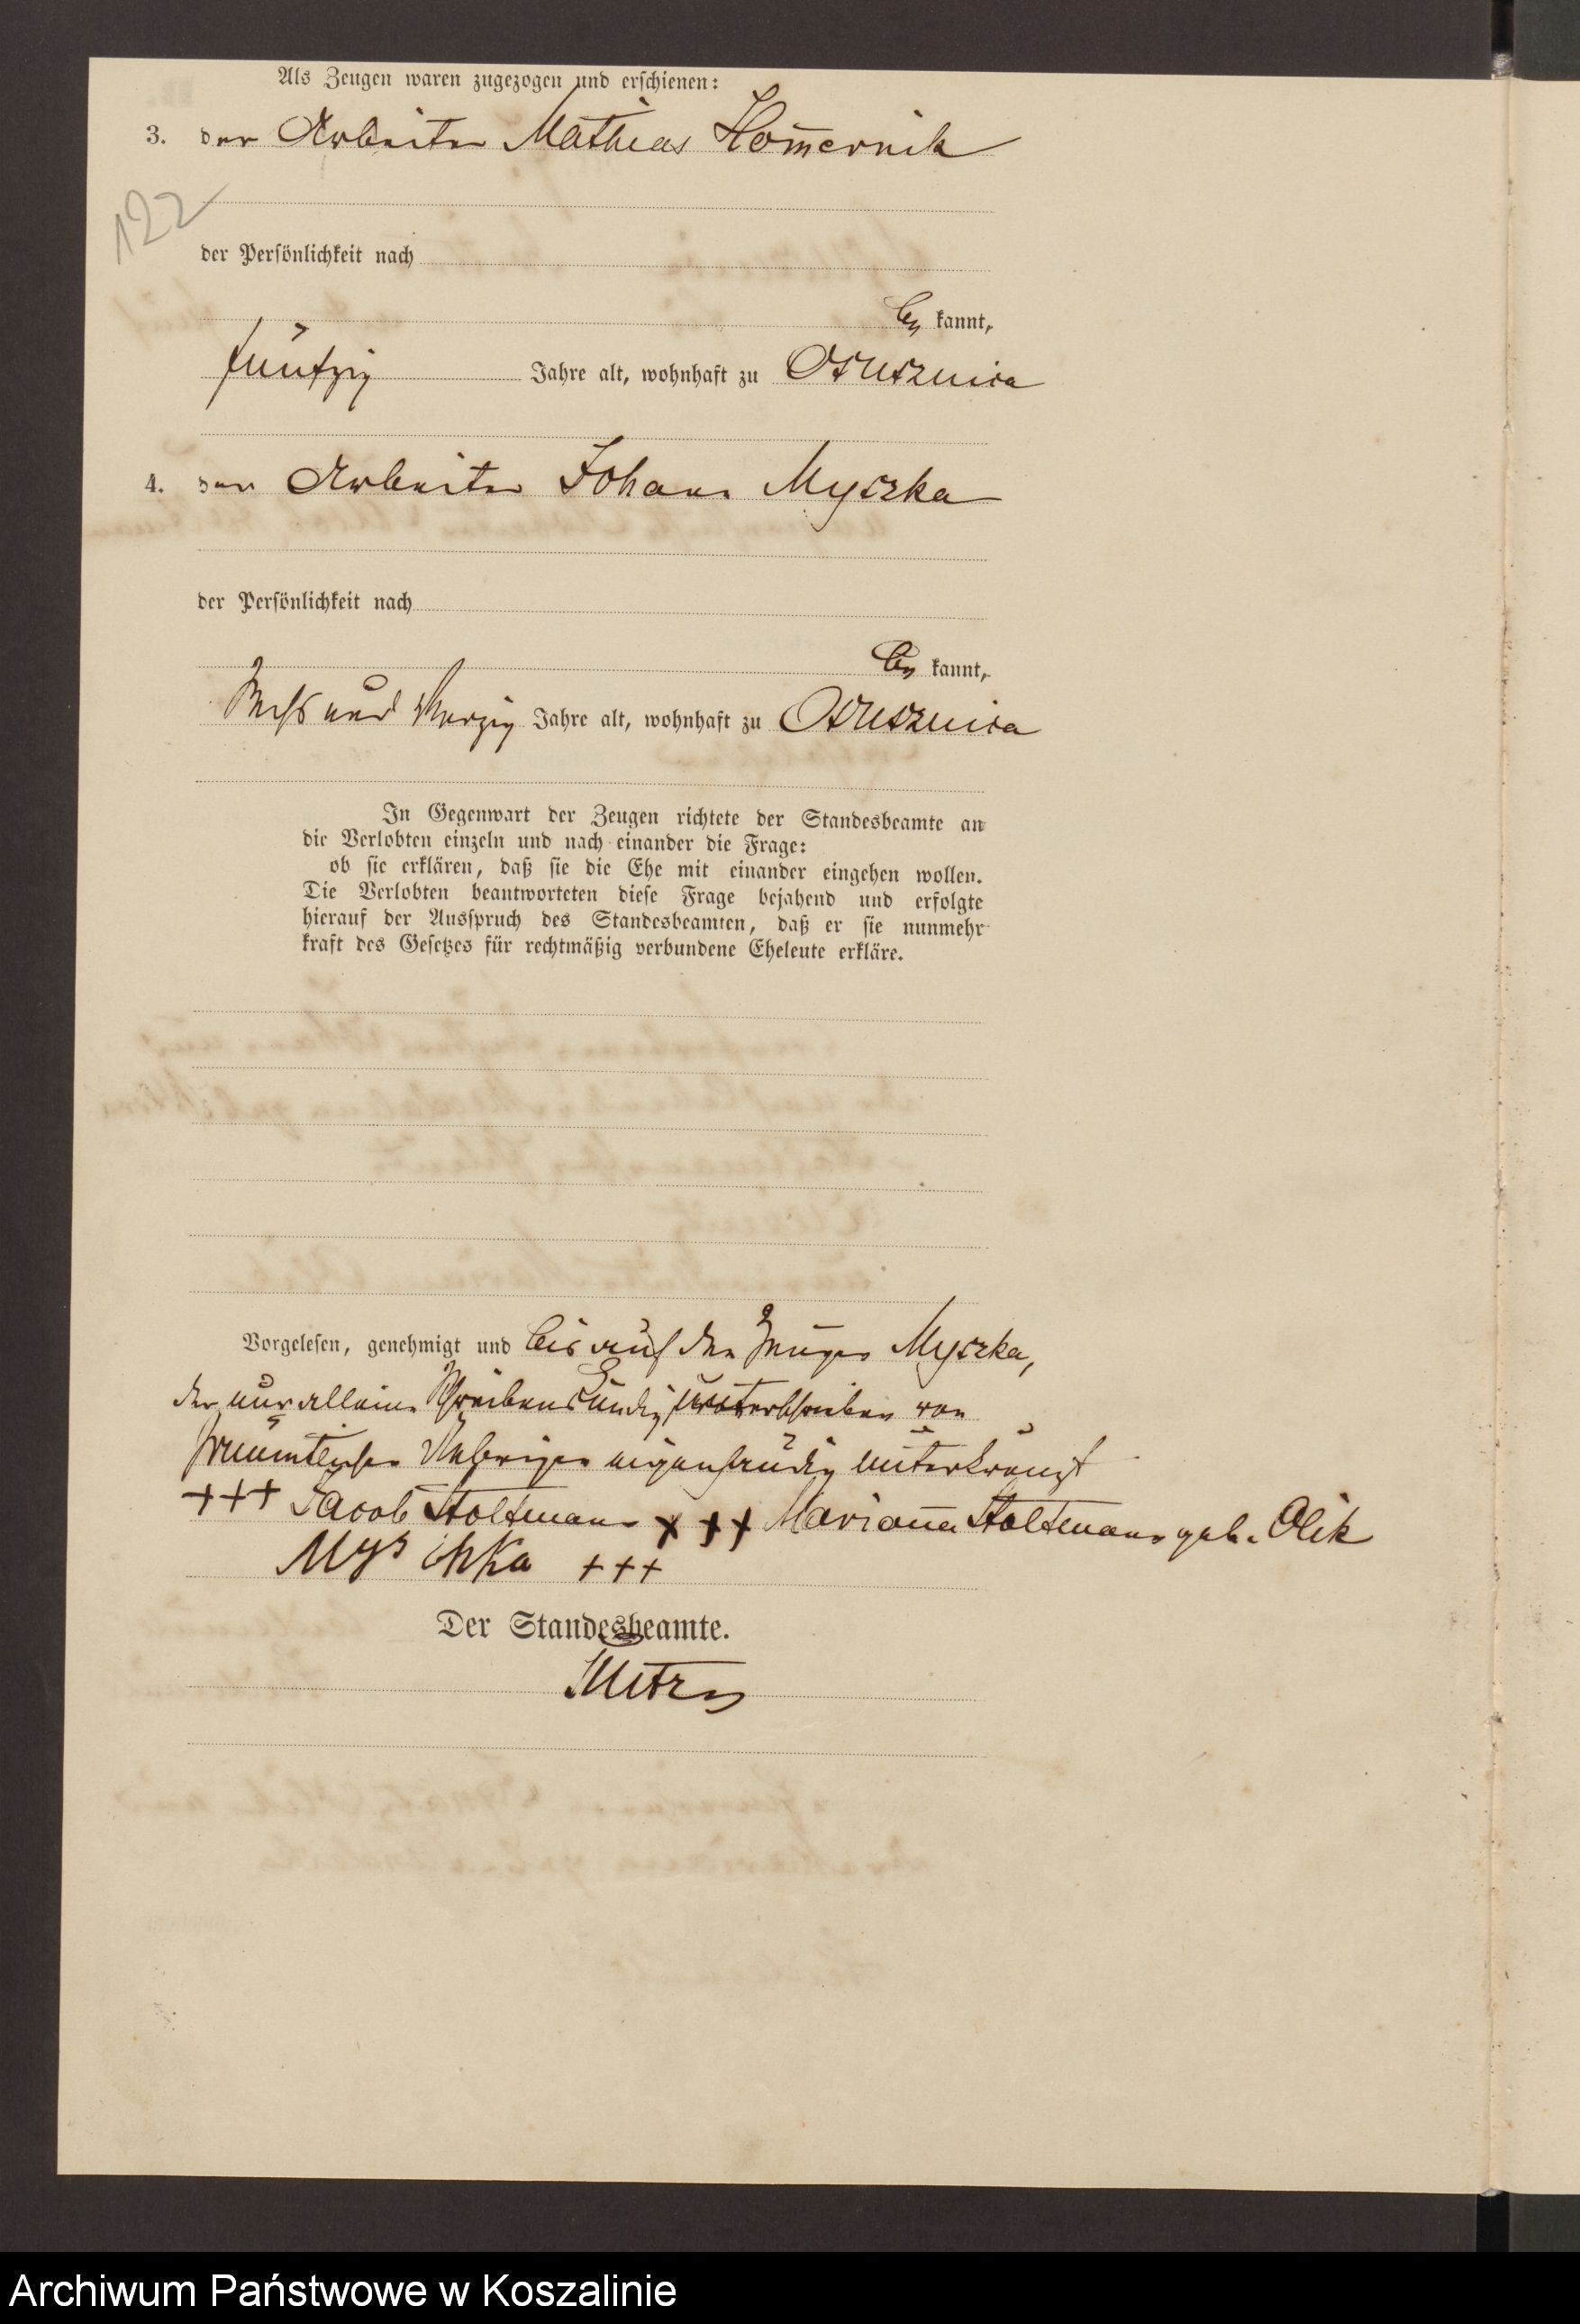 Als Zeugen waren zugezogen und erschienen:
3. der Arbeiter Mathias Hom̄ernik
122
der Persönlichkeit nach
be kannt,
fünfzig Jahre alt, wohnhaft zu Osusznica
4. der Arbeiter Johann Myszka
der Persönlichkeit nach
be kannt,
sechs und vierzig Jahre alt, wohnhaft zu Osusznica
In Gegenwart der Zeugen richtete der Standesbeamte an
die Verlobten einzeln und nach einander die Frage:
ob sie erklären, daß sie die Ehe mit einander eingehen wollen.
Die Verlobten beantworteten diese Frage bejahend und erfolgte
hierauf der Ausspruch des Standesbeamten, daß er sie nunmehr
kraft des Gesetzes für rechtmäßig verbundene Eheleute erkläre.
Vorgelesen, genehmigt und bis auf den Zeugen Myszka,
der nur allein schreibenskundig unterschrieben von
sämmtlichen Uebrigen eigenhändig unterkreuzt
+++ Jacob Stoltmann +++ Mariaña Stoltmann geb. Olik
Mys chka +++
Der Standesbeamte.
Archiwum Państwowe w Koszalinie